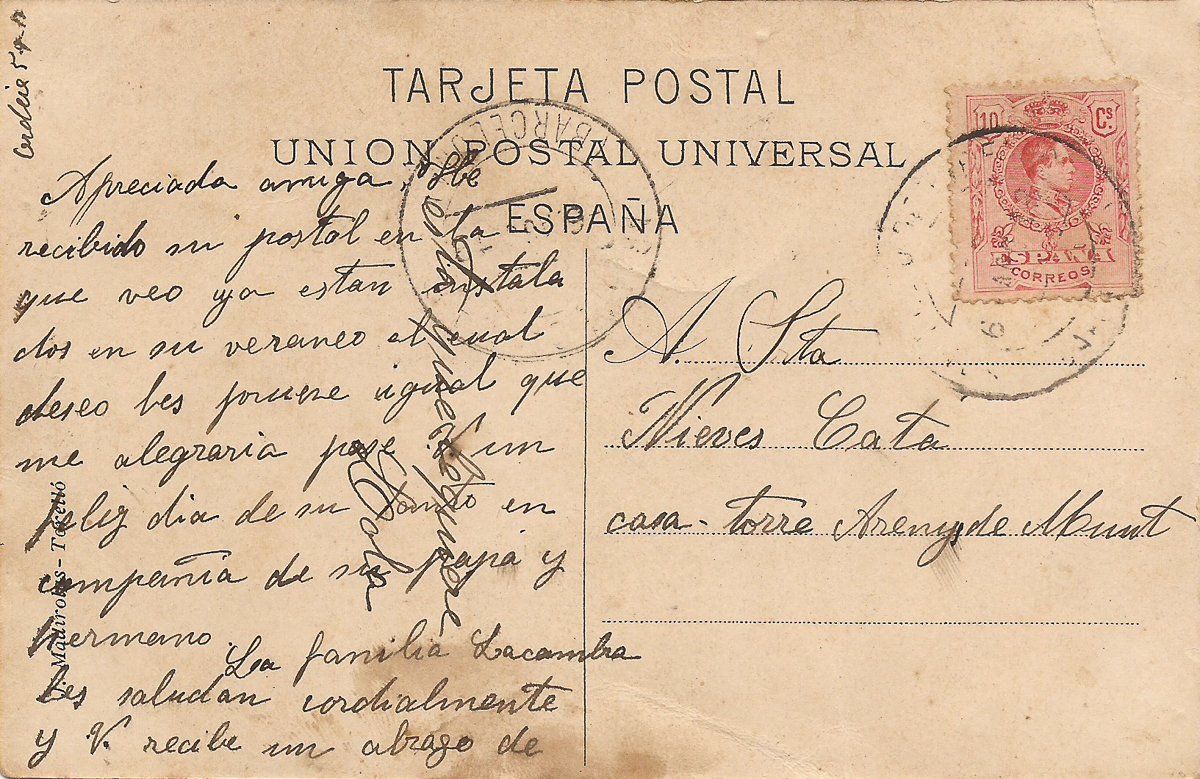 TARJETA POSTAL
UNION POSTAL UNIVERSAL
ESPAÑA
10 Cs
ESPAÑA
CORREOS
BARCELONA
Apreciada amiga, Hbe
recibido su postal en la
que veo ya estan instala
dos en su veraneo el cual
deseo les prueve igual que
me alegraria pase V. un
feliz dia de su Santo en
compañia de su papá y
hermano.
La familia Lacambra
les saludan cordialmente
y V. recibe un abrazo de
esta que la quiere
Lola
A. Sta
Nieves Cata
casa-torre Arenys de Munt
Madirolas-Torelló